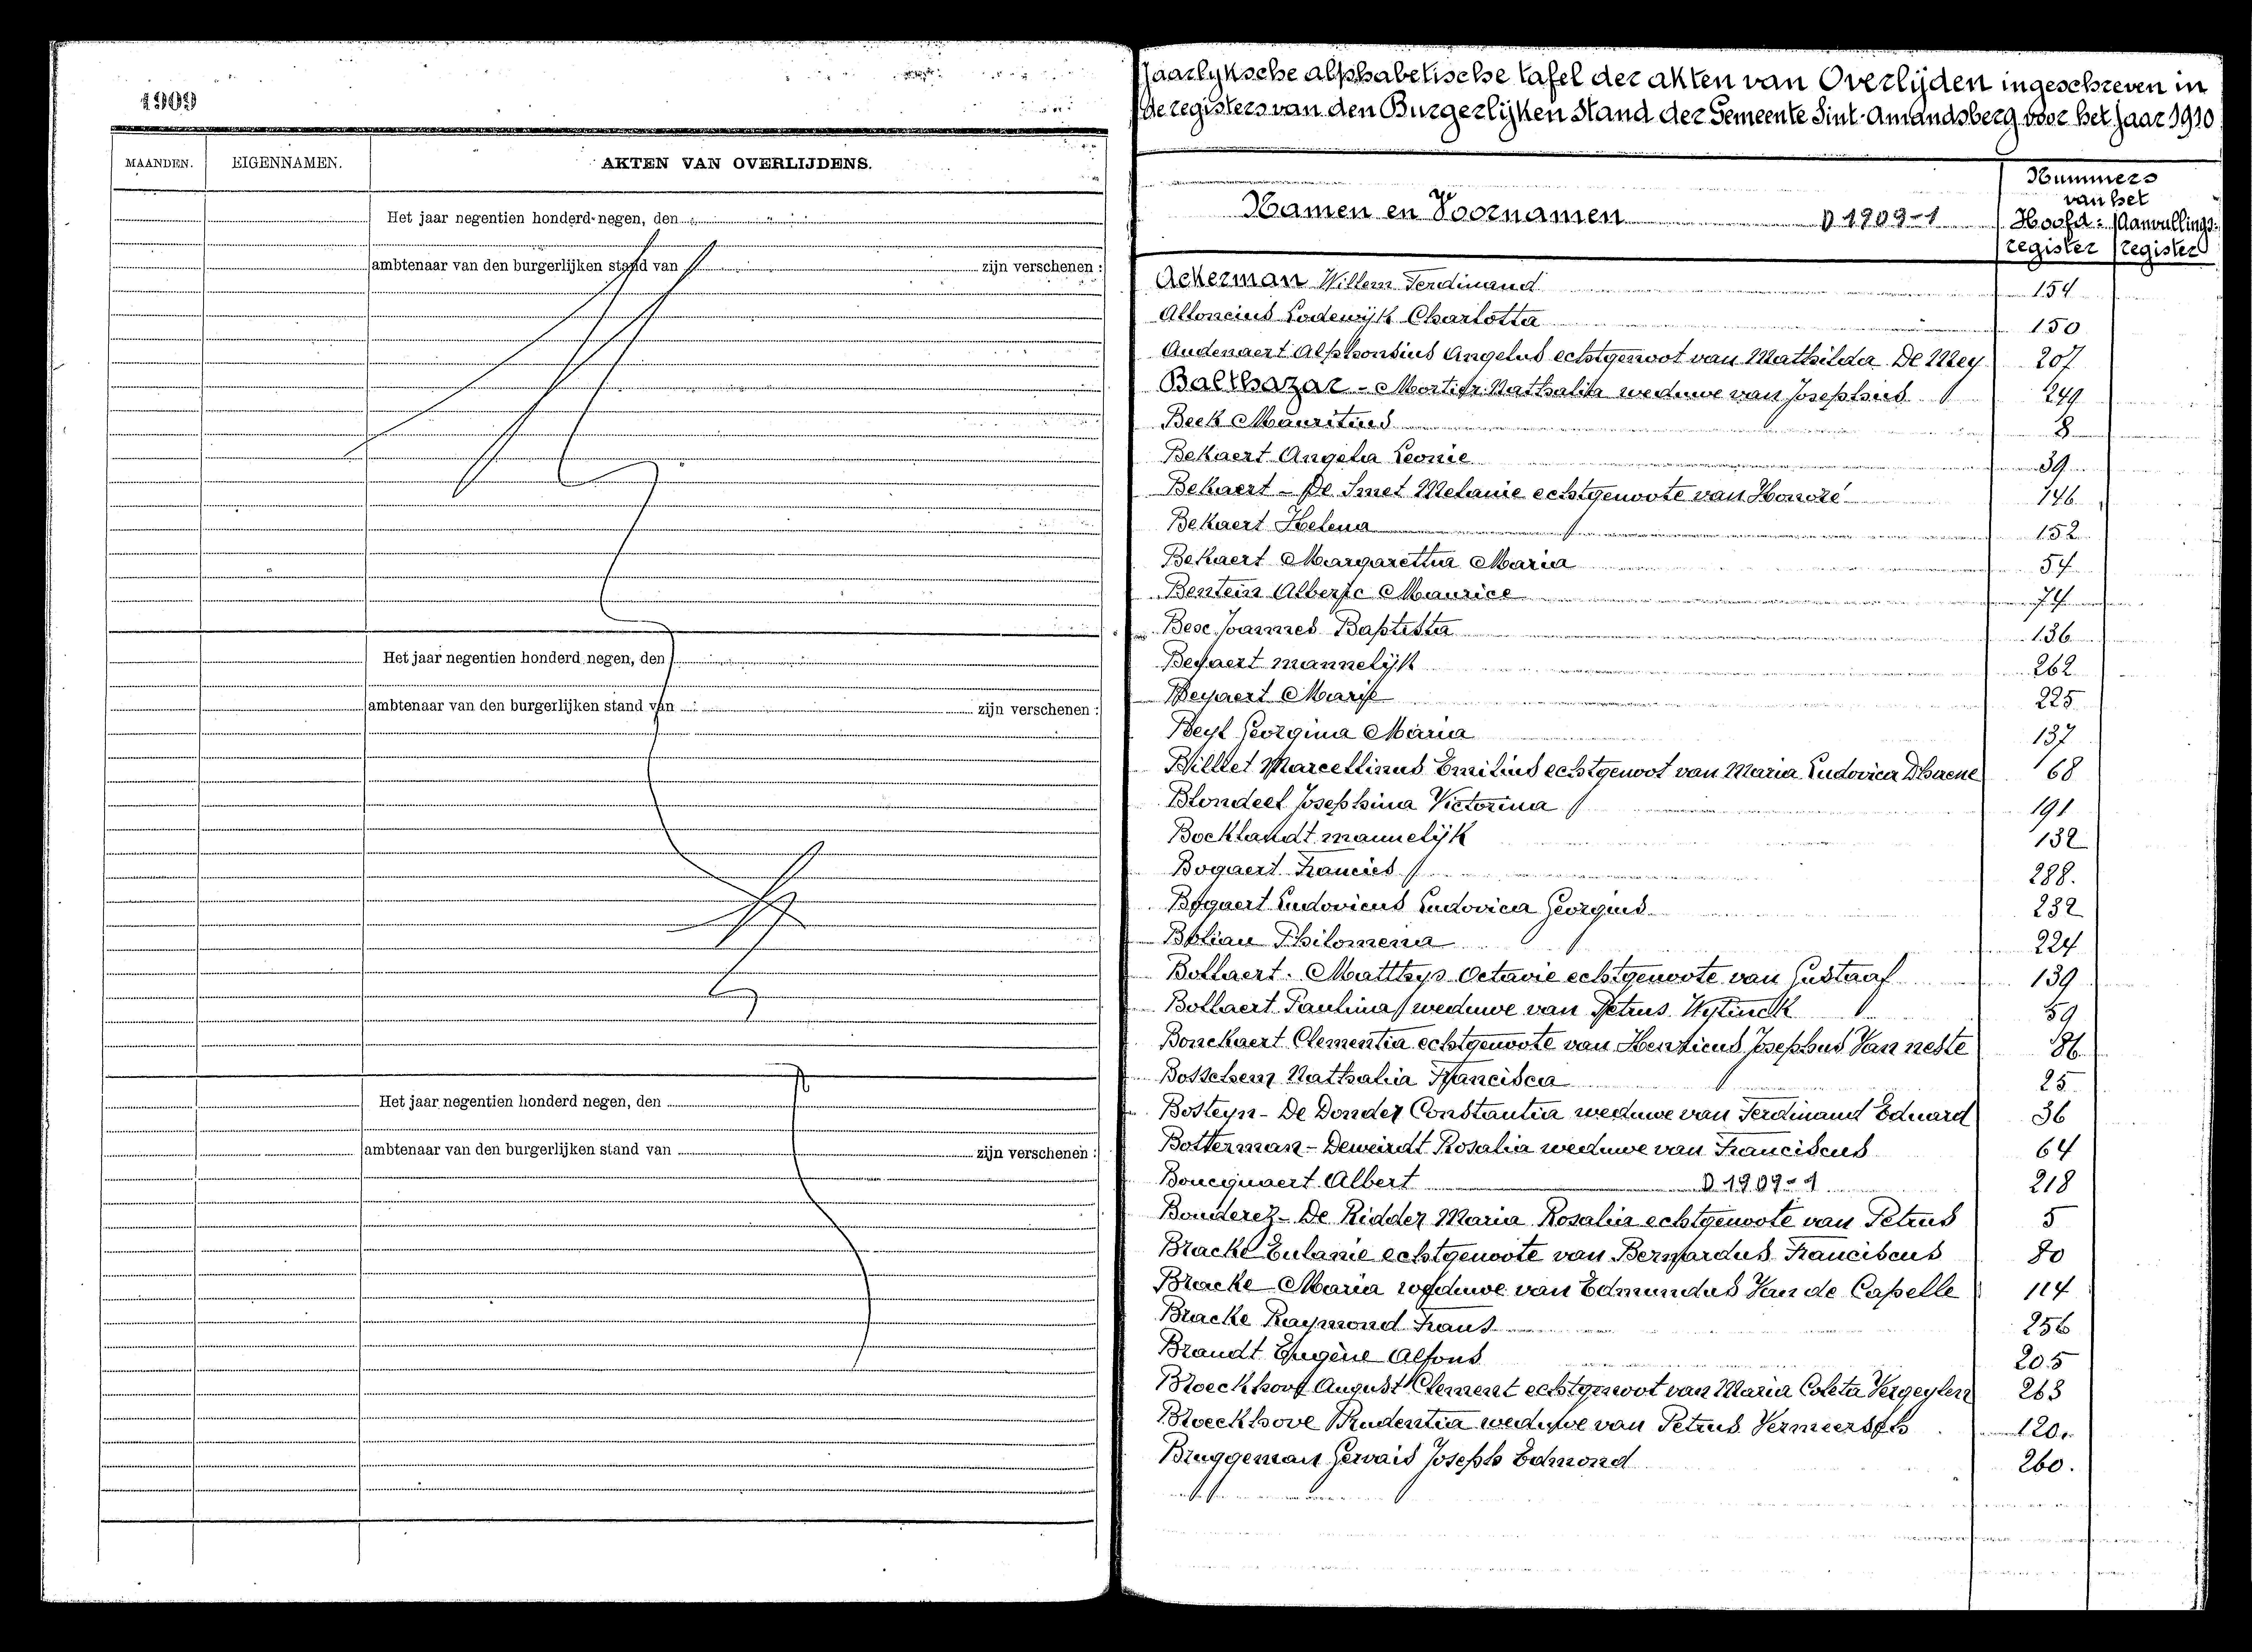 1909
MAANDEN. EIGENNAMEN. AKTEN VAN OVERLIJDENS.
Het jaar negentien honderd negen, den
ambtenaar van den burgerlijken stand van zijn verschenen :
Het jaar negentien honderd negen, den
ambtenaar van den burgerlijken stand van zijn verschenen :
Het jaar negentien honderd negen, den
ambtenaar van den burgerlijken stand van zijn verschenen :
Jaarlyksche alphabetische tafel der akten van Overlijden ingeschreven in
de registers van den Burgerlijken Stand der Gemeente Sint-Amandsberg voor het jaar 1910
Namen en Voornamen D 1909-1
Nummers
van het
Hoofd- Aanvullings-
register register
Ackerman Willem Ferdinand 154
Alloncius Lodewijk Charlotta 150
Audenaert Alphonsius Angelus echtgenoot van Mathilda De Mey 207
Balthazar - Mortier Nathalia weduwe van Josephus 249
Beek Mauritius 8
Bekaert Angela Leonie 39
Bekaert - De Smet Melanie echtgenoote van Honoré 146
Bekaert Helena 152
Bekaert Margaretha Maria 54
Bentein Alberic Maurice 74
Bese Joannes Baptista 136
Beyaert mannelijk 262
Beyaert Marie 225
Beyl Georgina Maria 137
Billiet Marcellinus Emilius echtgenoot van Maria Ludovica Dhaene 68
Blondeel Josephina Victorina 191
Bocklandt mannelijk 132
Bogaert Francies 288.
Bogaert Ludovicus Ludovica Georgius 232
Boliau Philomena 224
Bollaert - Matthys Octavie echtgenoote van Gustaaf 139
Bollaert Paulina weduwe van Petrus Wytinck 59
Bonckaert Clementia echtgenoote van Henricus Josephus Van neste 86
Bosselsem Nathalia Francisca 25
Bosteyn - De Donder Constantia weduwe van Ferdinand Eduard 36
Botterman - Deweirdt Rosalia weduwe van Franciscus 64
Boucquaert Albert D 1909-1 218
Bouderez - De Ridder Maria Rosalia echtgenoote van Petrus 5
Bracke Eulanie echtgenoote van Bernardus Franciscus 80
Bracke Maria weduwe van Edmundus Van de Capelle 114
Bracke Raymond Frans 256
Brandt Eugène Alfons 205
Broeckhove August Clement echtgenoot van Maria Coleta Vergeylen 263
Broeckhove Prudentia weduwe van Petrus Vermeersch 120.
Bruggeman Gervais Joseph Edmond 260.